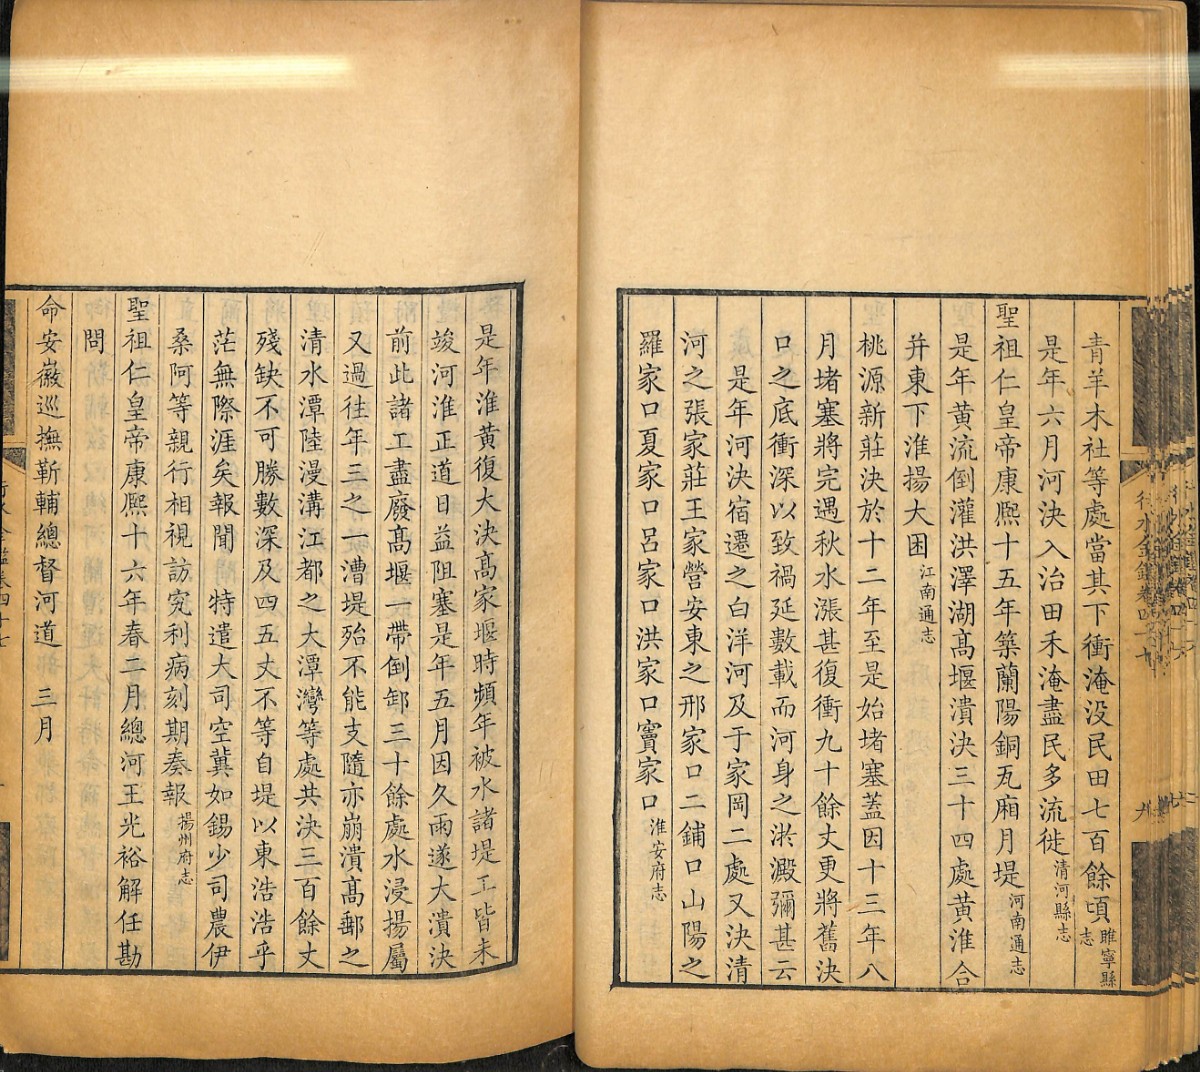 青羊木社等處當其下衝淹没民田七百餘頃睢寧縣志
是年六月河決入治田禾淹盡民多流徙清河縣志
聖祖仁皇帝康熙十五年築蘭陽銅瓦廂月堤河南通志
是年黄流倒灌洪澤湖髙堰潰決三十四處黄淮合
并東下淮揚大困江南通志
桃源新莊決於十二年至是始堵塞蓋因十三年八
月堵塞將完遇秋水漲甚復衝九十餘丈更將舊決
口之底衝深以致禍延數載而河身之淤澱彌甚云
是年河決宿遷之白洋河及于家岡二處又決清
河之張家莊王家營安東之邢家口二鋪口山陽之
羅家口夏家口呂家口洪家口竇家口淮安府志
是年淮黄復大決髙家堰時頻年被水諸堤工皆未
竣河淮正道日益阻塞是年五月因久雨遂大潰決
前此諸工盡廢髙堰一帶倒卸三十餘處水浸揚屬
又過往年三之一漕堤殆不能支隨亦崩潰髙郵之
清水潭陸漫溝江都之大潭灣等處共決三百餘丈
殘缺不可勝數深及四五丈不等自堤以東浩浩乎
茫無際涯矣報聞 特遣大司空冀如錫少司農伊
桑阿等親行相視訪究利病刻期奏報揚州府志
聖祖仁皇帝康熙十六年春二月總河王光裕解任勘
問
命安徽巡撫靳輔總督河道 三月